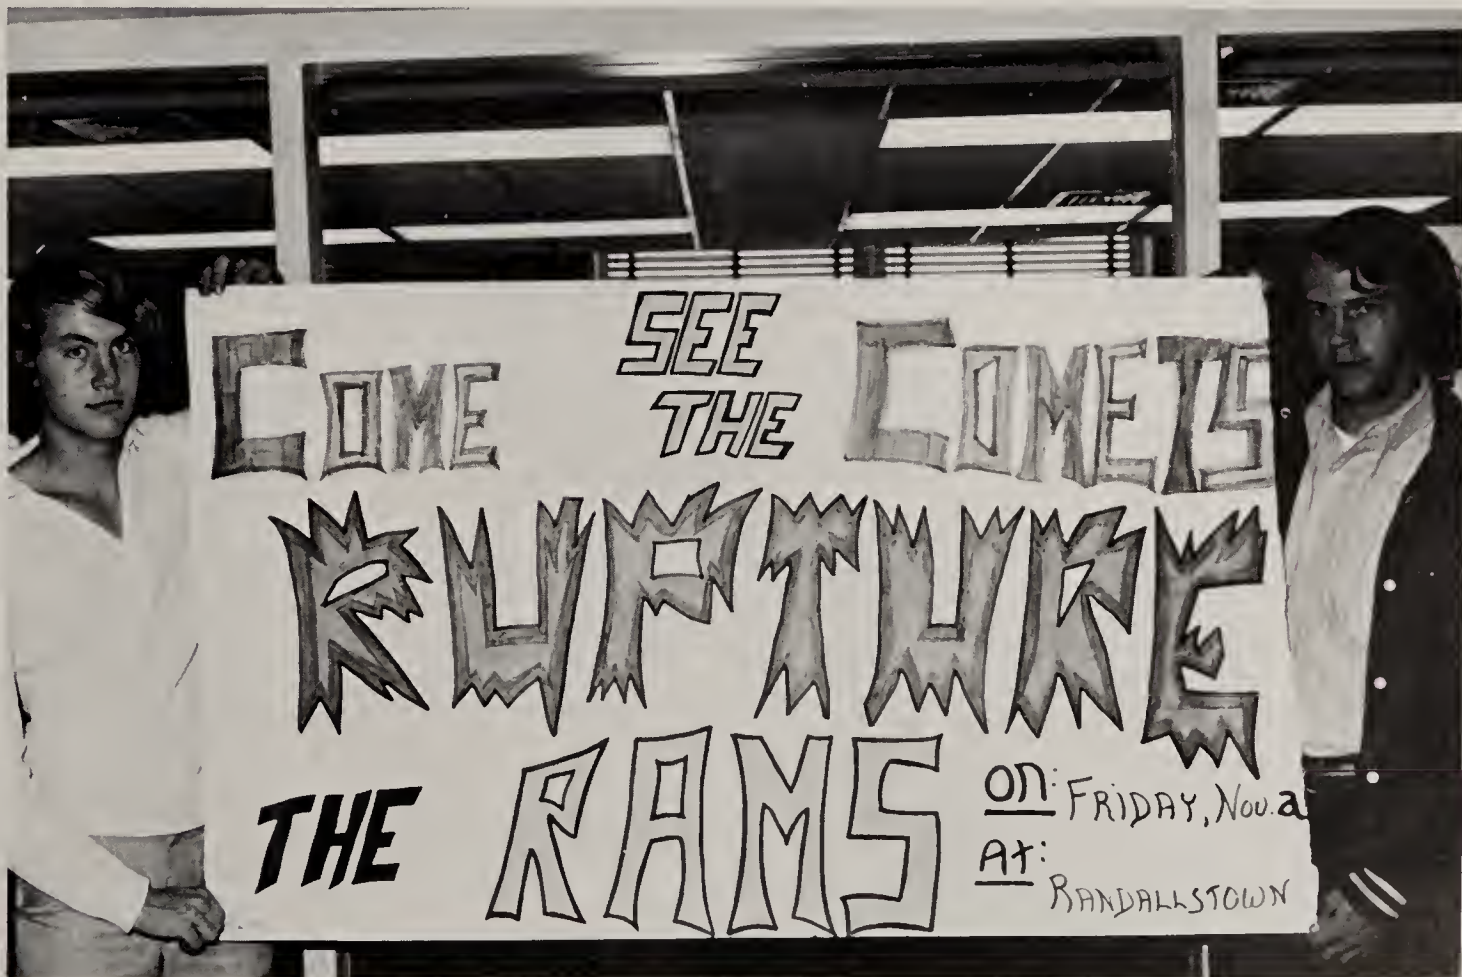 COME
SEE
THE
COMETS
RUPTURE
THE RAMS
on: FRiDAY, Nov. 2
At:
RANDALLSTOWN